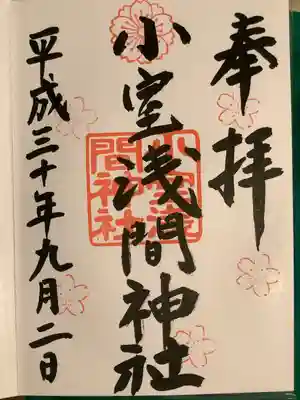 奉拝
小室浅間神社
平成三十年九月二日
小室浅間神社